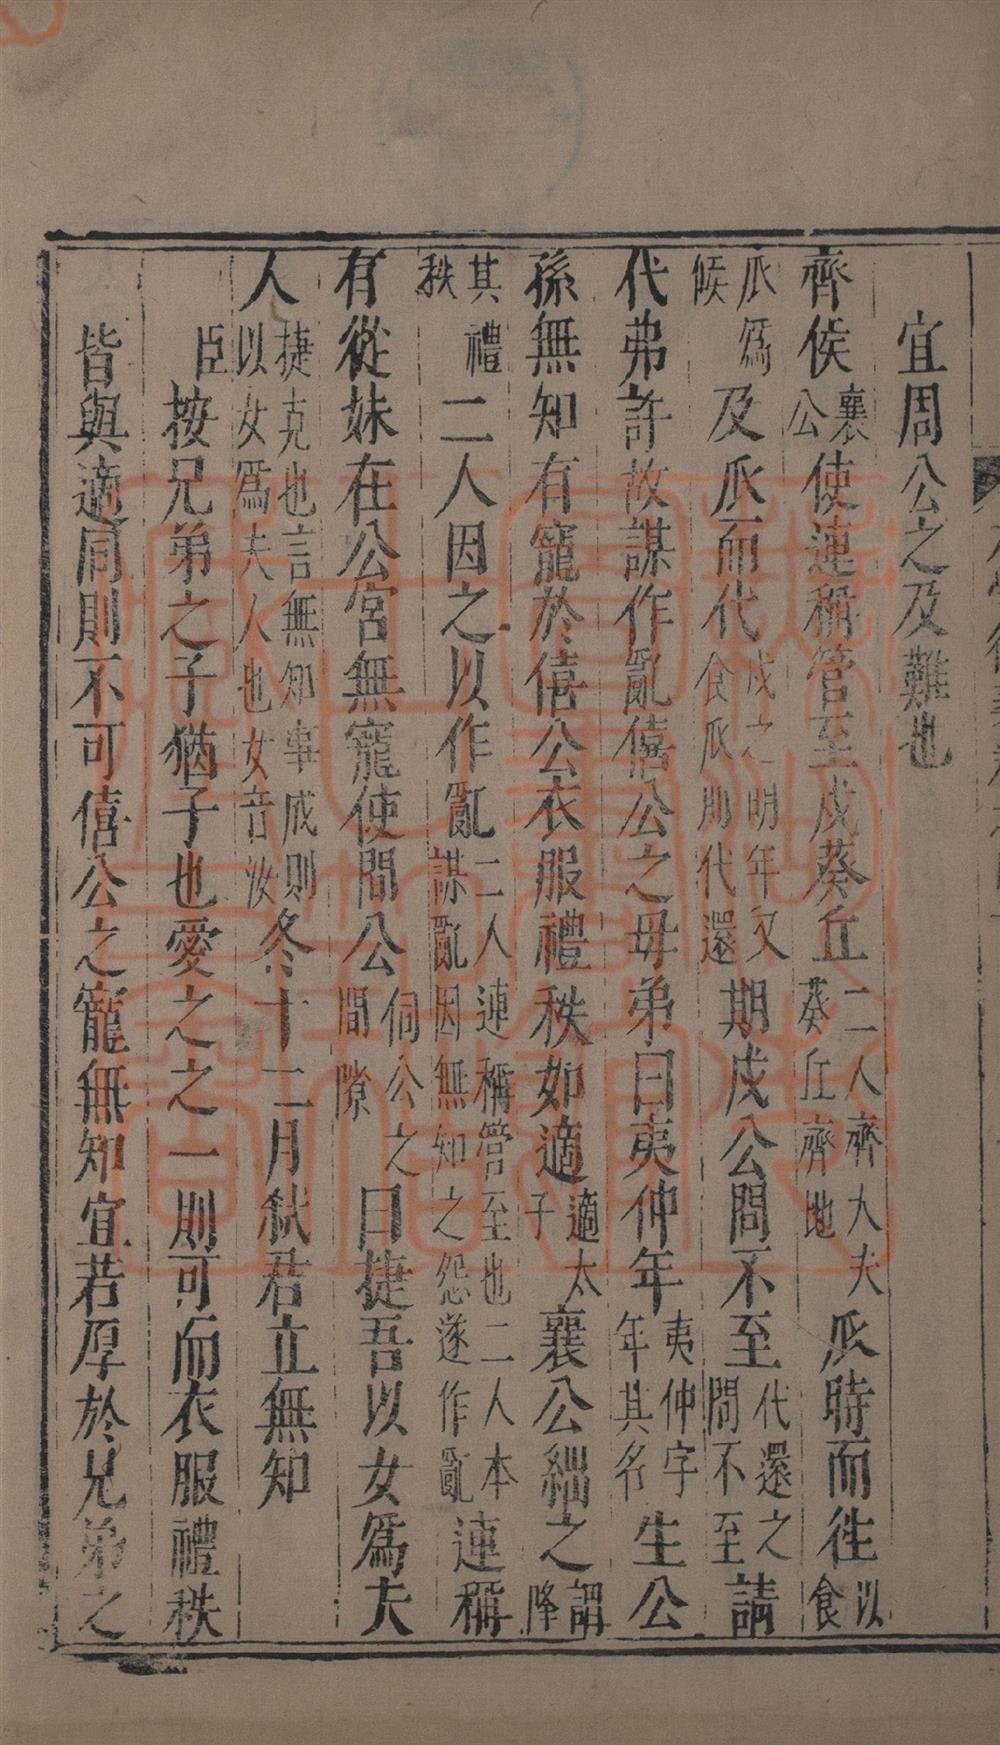 宜周公之及難也
齊侯襄公使連稱管至戍葵丘二人齊大夫葵丘齊地瓜時而往以食
瓜爲候及瓜而代戍之明年又食瓜則代還期戍公問不至代還之問不至請
代弗許故謀作亂僖公之母弟曰夷仲年夷仲字年其名生公
孫無知有寵於僖公衣服禮秩如適適太子襄公絀之謂降
其禮秩二人因之以作亂二人連稱管至也二人本謀亂因無知之怨遂作亂連稱
有從妹在公宮無寵使間公伺公之間隙曰捷吾以女爲夫
人捷克也言無知事成則以女爲夫人也女音汝冬十二月弑君立無知
臣按兄弟之子猶子也愛之之一則可而衣服禮秩
皆與適同則不可僖公之寵無知宜若厚於兄弟之